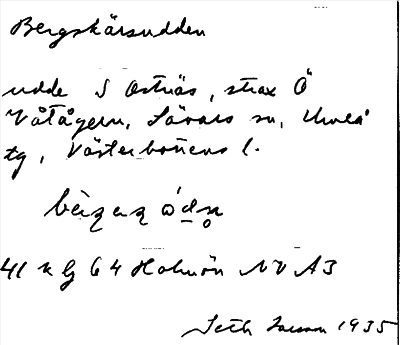 Bergskärsudden
udde S Ostnäs, strax Ö
Våtågern, Sävars sn, Umeå
tg, Västerbottens l.
41 kg 64 Holmön NV A3
Seth Larsson 1935